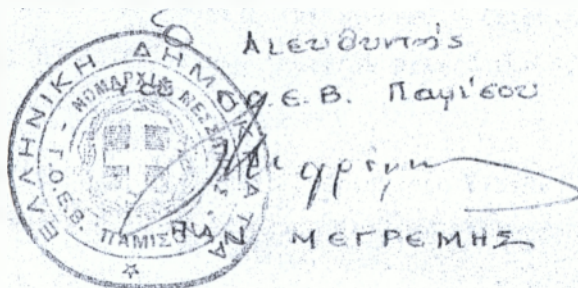 Ο Διευθυντής
Γ.Ο.Ε.Β. Παμίσου
ΜΕΓΡΕΜΗΣ
ΕΛΛΗΝΙΚΗ ΔΗΜΟΚΡΑΤΙΑ
ΝΟΜΑΡΧΙΑ ΜΕΣΣ
Γ.Ο.Ε.Β. ΠΑΜΙΣΟΥ